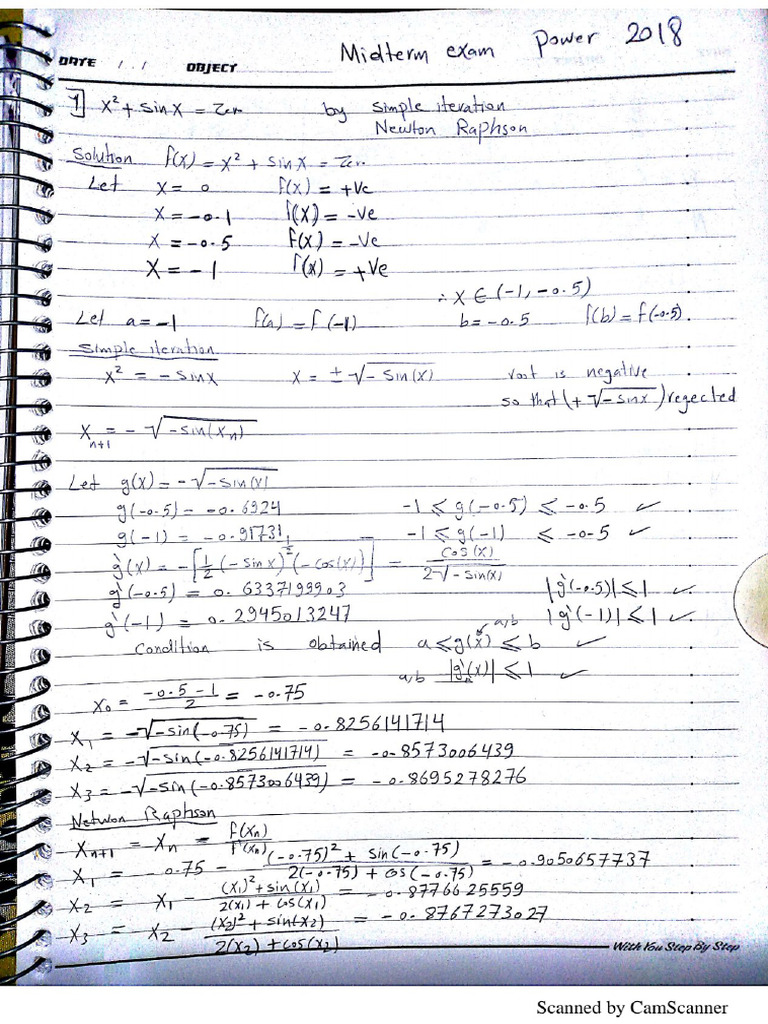 Midterm exam Power 2018
DATE / / OBJECT
1] x² + sin x = Zero by simple iteration
Newton Raphson
Solution f(x) = x² + sin x = Zero
Let x = 0 f(x) = +ve
x = -0.1 f(x) = -ve
x = -0.5 f(x) = -ve
x = -1 f(x) = +ve
∴ x ∈ (-1, -0.5)
Let a = -1 f(a) = f(-1) b = -0.5 f(b) = f(-0.5)
Simple iteration
x² = -sin x x = ±√-sin(x) root is negative
so that (+√-sin x) regected
x_{n+1} = -√-sin(x_n)
Let g(x) = -√-sin(x)
g(-0.5) = -0.6924 -1 ≤ g(-0.5) ≤ -0.5 ✓
g(-1) = -0.91731 -1 ≤ g(-1) ≤ -0.5 ✓
g'(x) = -[1/2 (-sin x)^{-1/2} (-cos(x))] = cos(x) / 2√-sin(x)
g'(-0.5) = 0.6337199903 |g'(-0.5)| ≤ 1 ✓
g'(-1) = 0.2945013247 |g'(-1)| ≤ 1 ✓
Condition is obtained a ≤ g(x) ≤ b ✓ a/b
a/b |g'(x)| ≤ 1 ✓
x₀ = (-0.5 - 1) / 2 = -0.75
x₁ = -√-sin(-0.75) = -0.8256141714
x₂ = -√-sin(-0.8256141714) = -0.8573006439
x₃ = -√-sin(-0.8573006439) = -0.8695278276
Netwon Raphson
x_{n+1} = x_n = f(x_n) / f'(x_n)
x₁ = -0.75 - ((-0.75)² + sin(-0.75)) / (2(-0.75) + cos(-0.75)) = -0.9050657737
x₂ = x₁ - ((x₁)² + sin(x₁)) / (2(x₁) + cos(x₁)) = -0.8776625559
x₃ = x₂ - ((x₂)² + sin(x₂)) / (2(x₂) + cos(x₂)) = -0.8767273027
With You Step By Step
Scanned by CamScanner